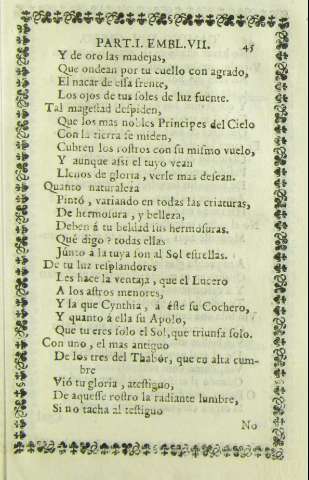 PART.I. EMBL.VII. 45
Y de oro las madejas,
Que ondean por tu cuello con agrado,
El nacar de essa frente,
Los ojos de tus soles de luz fuente.
Tal magestad despiden,
Que los mas nobles Principes del Cielo
Con la tierra se miden,
Cubren los rostros con su mismo vuelo,
Y aunque assi el tuyo vean
Llenos de gloria, verle mas desean.
Quanto naturaleza
Pintó, variando en todas las criaturas,
De hermosura, y belleza,
Deben á tu beldad sus hermosuras.
Què digo? todas ellas
Junto a la tuya son al Sol estrellas.
De tu luz resplandores
Les hace la ventaja, que el Lucero
A los astros menores,
Y la que Cynthia, á éste su Cochero,
Y quanto á ella su Apolo,
Que tu eres solo el Sol, que triunfa solo.
Con uno, el mas antiguo
De los tres del Thabòr, que en alta cum-
bre
Viò tu gloria, atestiguo,
De aquesse rostro la radiante lumbre,
Si no tacha al testiguo
No